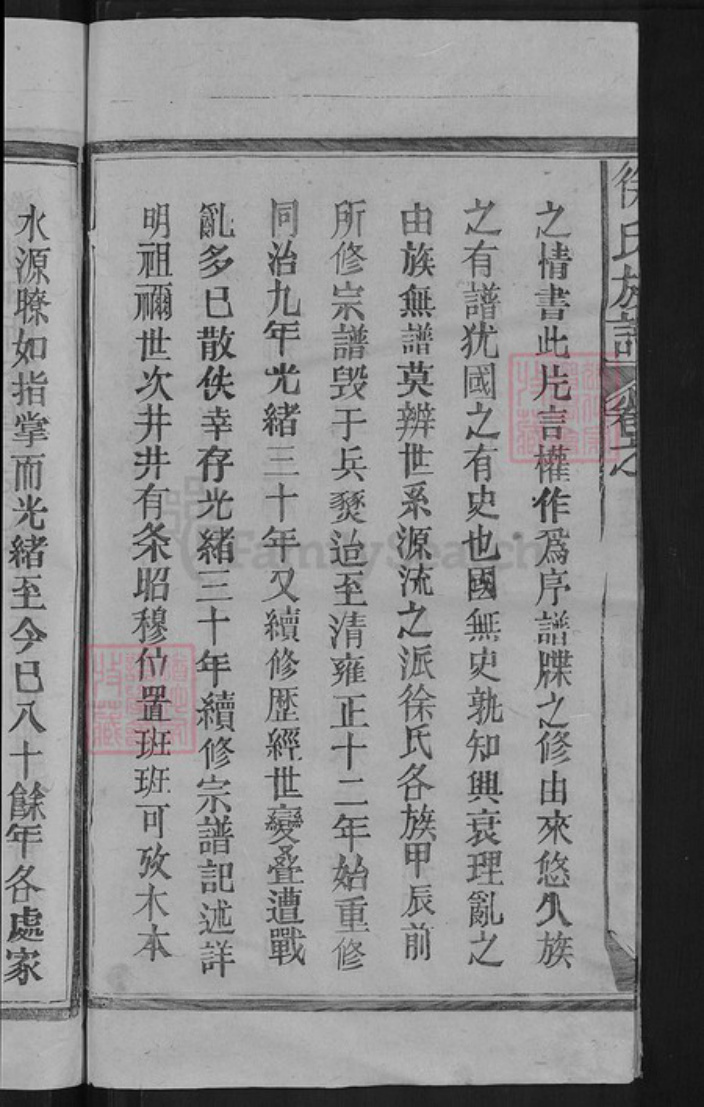 徐氏族譜
之情書此片言權作爲序譜牒之修由來悠久族
之有譜犹國之有史也國無史孰知興衰理亂之
由族無譜莫辨世系源流之派徐氏各族甲辰前
所修宗譜毁于兵燹迨至清雍正十二年始重修
同治九年光緒三十年又續修歷經世變叠遭戰
亂多已散佚幸存光緒三十年續修宗譜記述詳
明祖禰世次井井有条昭穆位置班班可攷木本
水源瞭如指掌而光緒至今已八十餘年各處家
FamilySearch